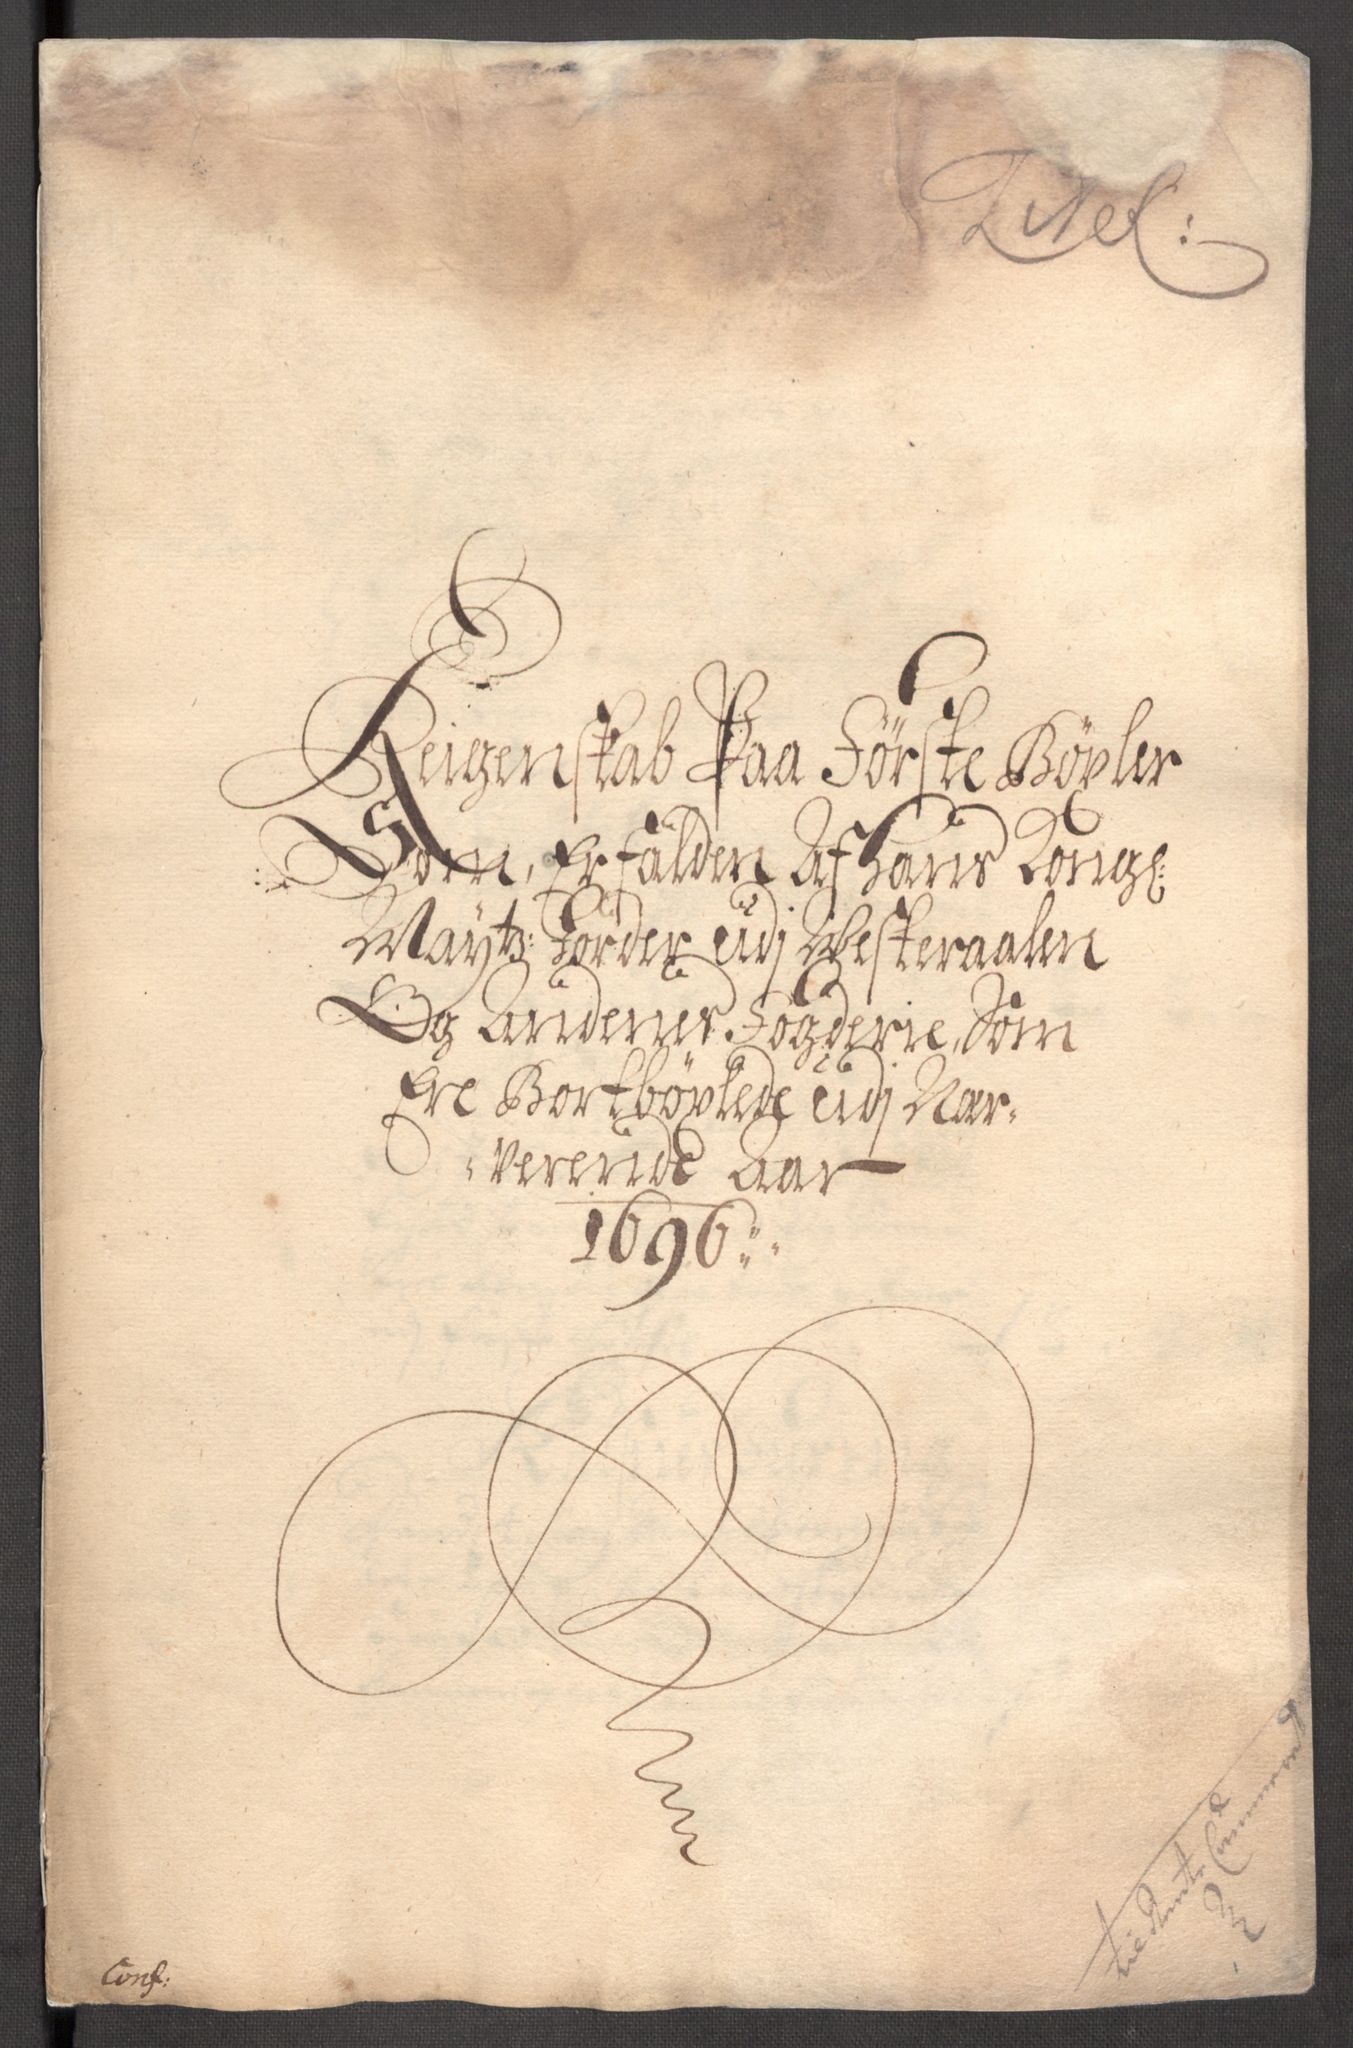 Titel:
Reigenskab Paa Förste Böxler
Som, Er fälden Af Hans Kongl:
Maÿts: Jorder udj Westeraalen
Og Andenes Fogderie, Som
Ere Bortböxlede udj Nær-
-verende Aar
1696
Conf: